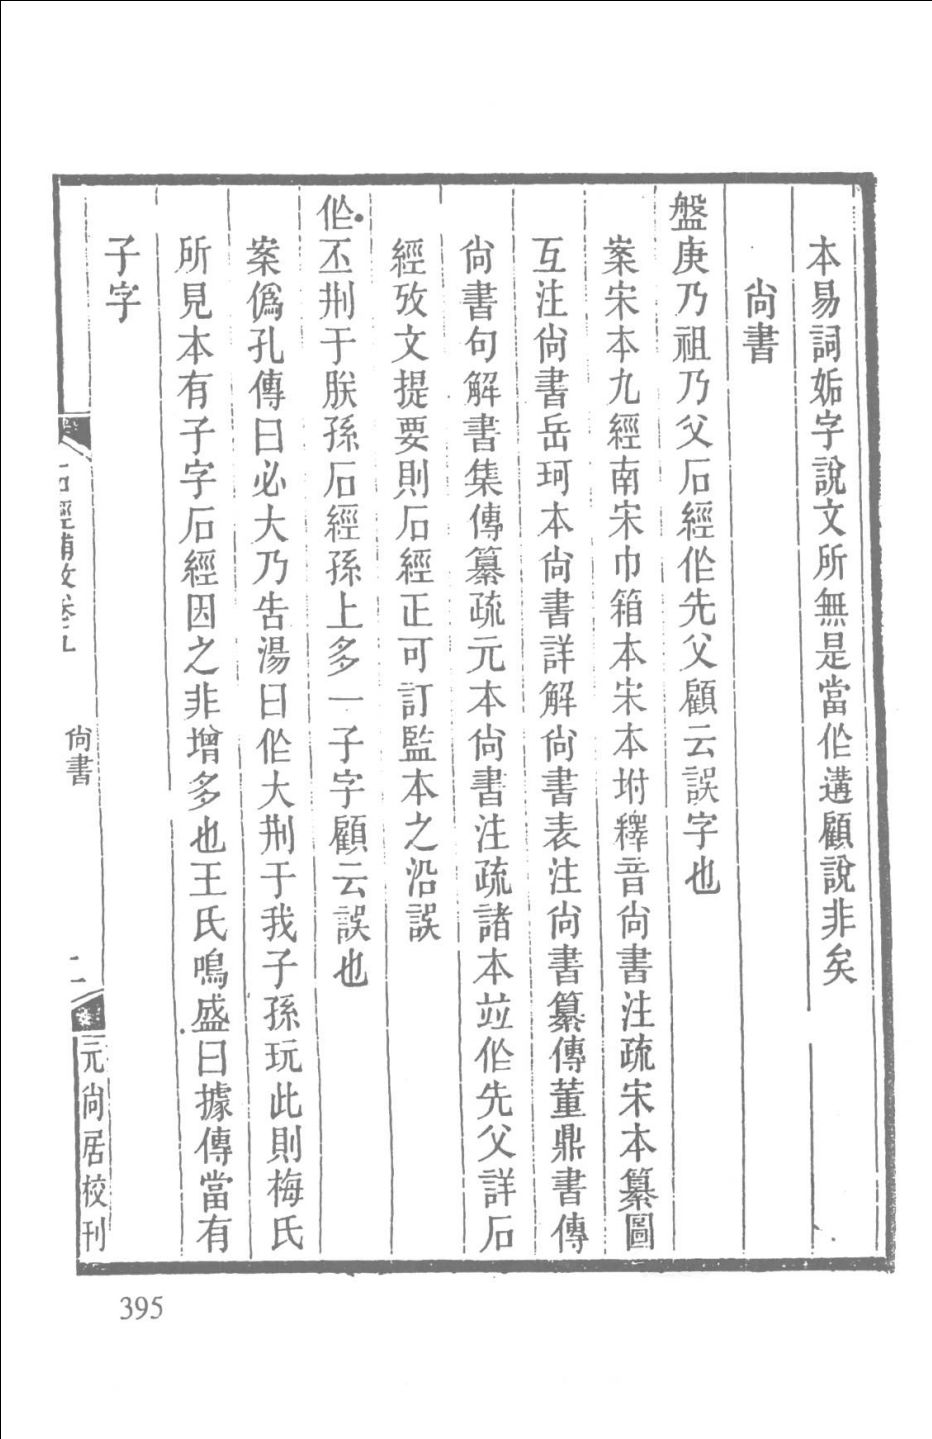 本易詞姤字說文所無是當作遘顧說非矣
尙書
盤庚乃祖乃父石經作先父顧云誤字也
案宋本九經南宋巾箱本宋本坿釋音尙書注疏宋本纂圖
互注尙書岳珂本尙書詳解尙書表注尙書纂傳董鼎書傳
尙書句解書集傳纂疏元本尙書注疏諸本竝作先父詳石
經攷文提要則石經正可訂監本之沿誤
作丕刑于朕孫石經孫上多一子字顧云誤也
案僞孔傳曰必大乃告湯曰作大刑于我子孫玩此則梅氏
所見本有子字石經因之非增多也王氏鳴盛曰據傳當有
子字
石經補攷卷九
尙書
二
元尙居校刊
395